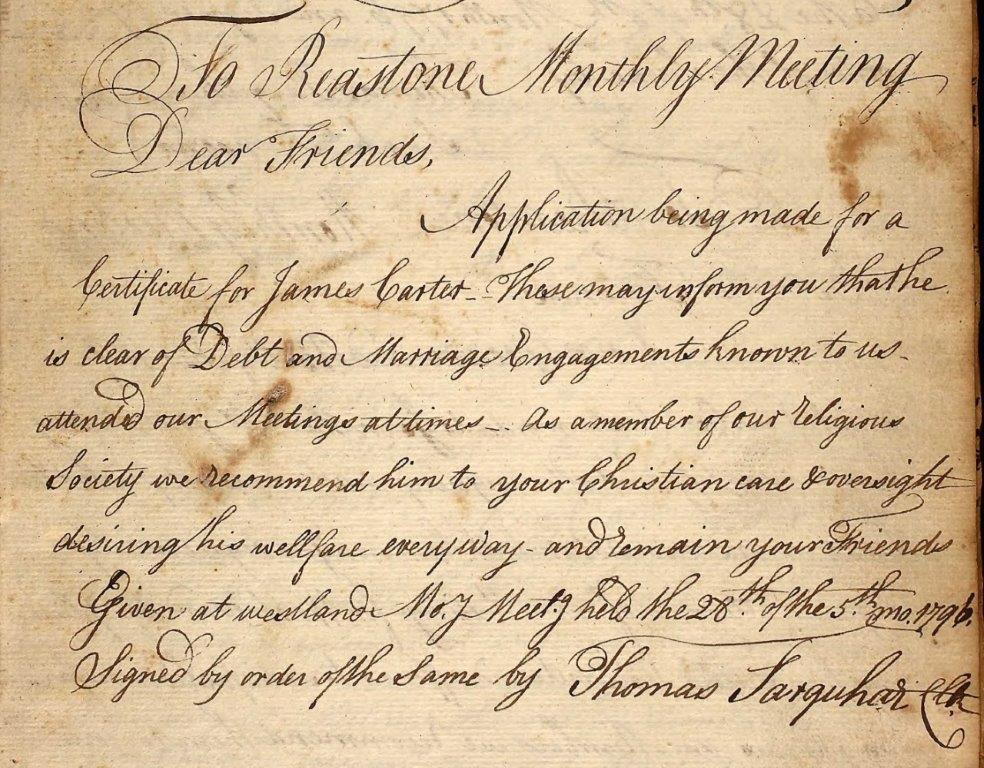 To Reastone Monthly Meeting
Dear Friends,
Application being made for a
Certificate for James Carter - These may inform you that he
is clear of Debt and Marriage Engagements known to us -
attended our Meetings at times - As a member of our religious
Society we recommend him to your Christian care & oversight
desiring his wellfare every way - and remain your Friends
Given at westland Mo.y Meet.g held the 28th of the 5th mo. 1796.
Signed by order of the Same by Thomas Farquhar Clk